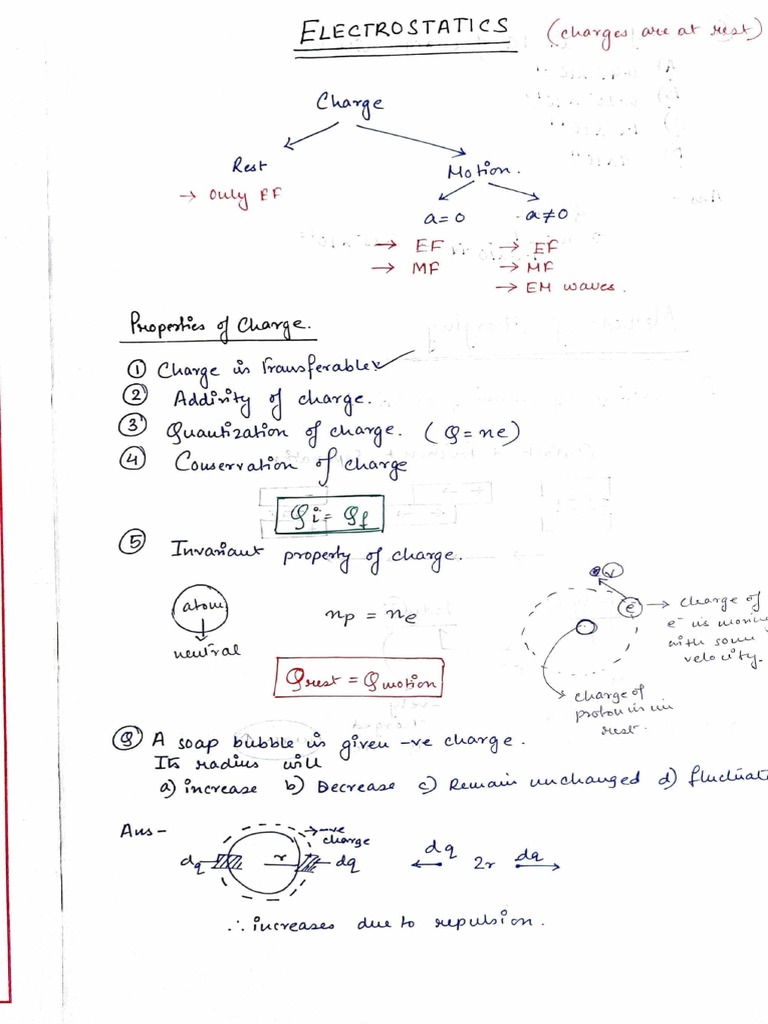 ELECTROSTATICS (charges are at rest)
Charge
Rest Motion.
→ Only EF
a = 0 a ≠ 0
→ EF → EF
→ MF → MF
→ EM waves.
Properties of Charge.
① Charge is Transferable ✓
② Addivity of charge.
③ Quantization of charge. (Q = ne)
④ Conservation of charge
Qi = Qf
⑤ Invariant property of charge.
atom
neutral
np = ne
Qrest = Qmotion
v
e⁻ → charge of
e⁻ is moving
with some
velocity.
charge of
proton is in
rest.
Q A soap bubble is given -ve charge.
Its radius will
a) increase b) Decrease c) Remain unchanged d) fluctuat
Ans -
→ -ve
charge
dq r dq
dq 2r dq
∴ increases due to repulsion.